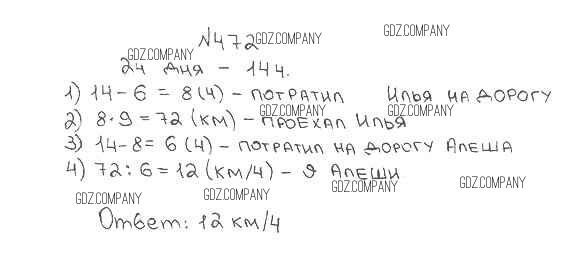 GDZ.COMPANY
№472 GDZ.COMPANY
GDZ.COMPANY
24 дня – 14ч.
1) 14-6 = 8 (ч) – потратил Илья на дорогу
GDZ.COMPANY GDZ.COMPANY
2) 8·9 = 72 (км) – проехал Илья
3) 14-8 = 6 (ч) – потратил на дорогу Алеша
4) 72:6 = 12 (км/ч) – υ Алеши
GDZ.COMPANY GDZ.COMPANY GDZ.COMPANY GDZ.COMPANY
Ответ: 12 км/ч